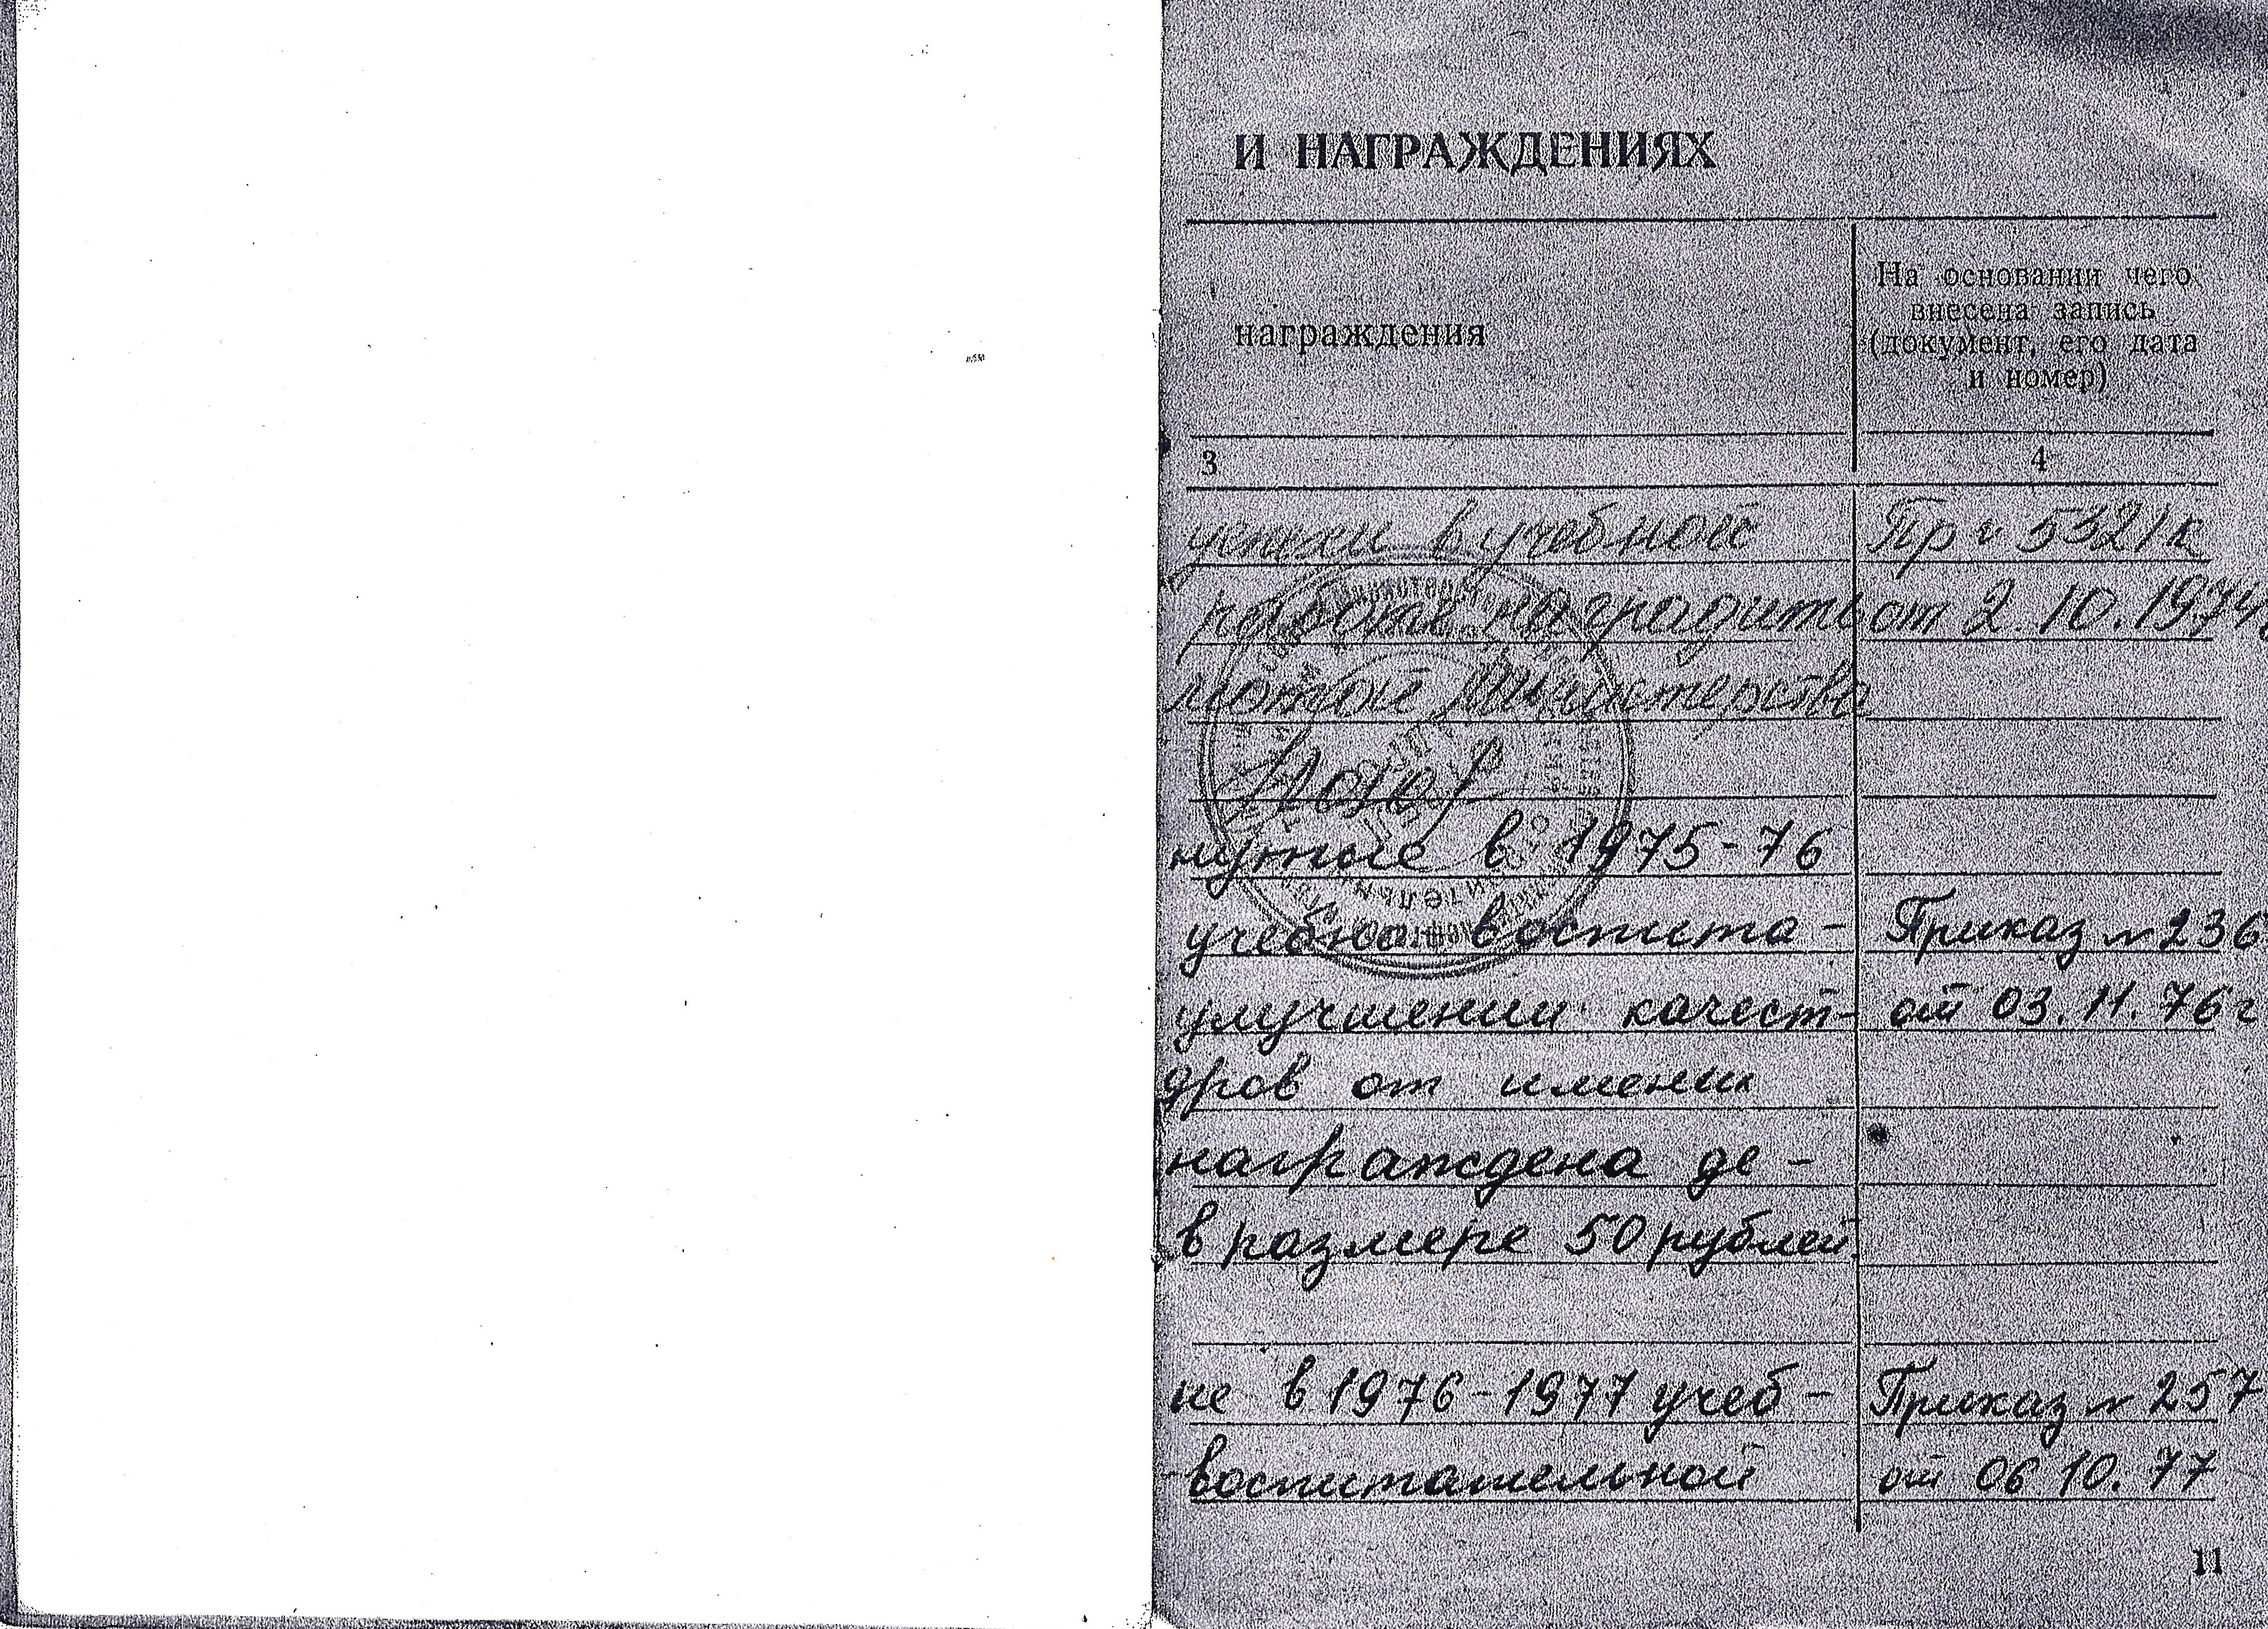 И НАГРАЖДЕНИЯХ
награждения
На основании чего
внесена запись
(документ, его дата
и номер)
3 4
успехи в учебной Пр № 532/к
работе наградить от 2.10.1974г
мотой Министерства
нутые в 1975-76
учебно-воспита- Приказ № 236
улучшении качест- от 03.11.76г
дров от имени
награждена де-
в размере 50 рублей.
не в 1976-1977 учеб- Приказ № 257
воспитательной от 06 10.77
11